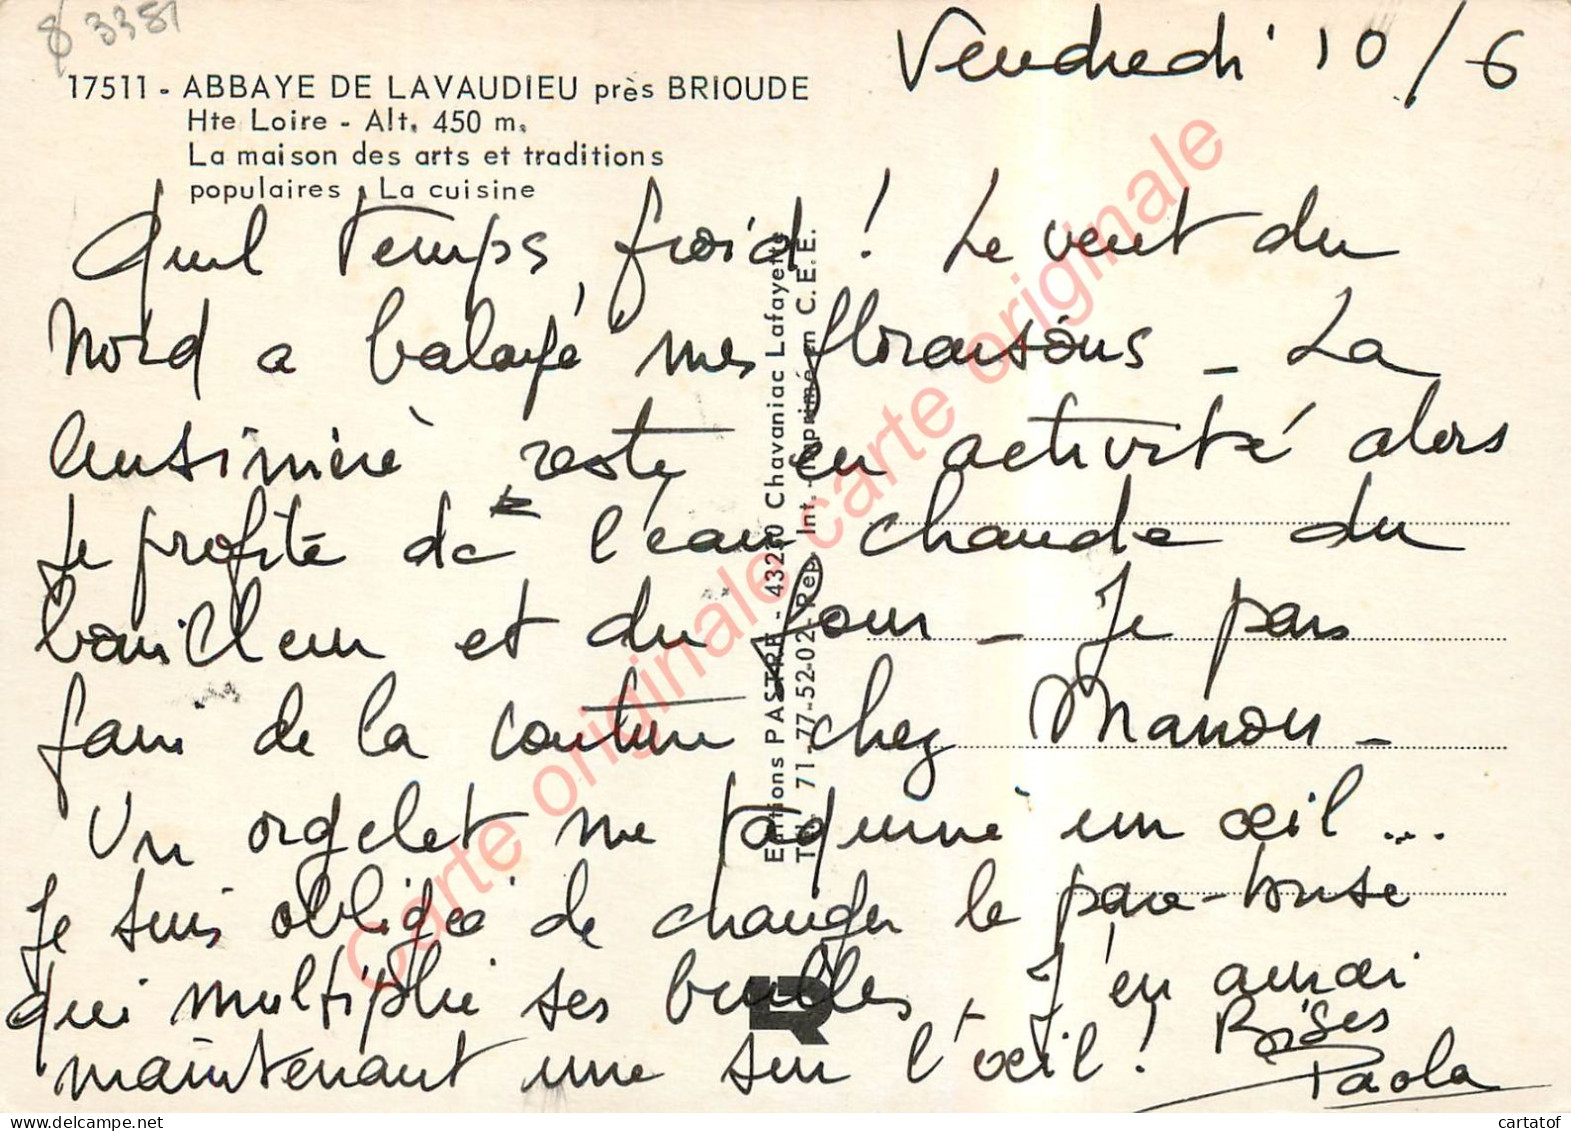 8 3381
Vendredi 10/6
17511 - ABBAYE DE LAVAUDIEU près BRIOUDE
Hte Loire - Alt. 450 m.
La maison des arts et traditions
populaires - La cuisine
Quel temps froid ! Le vent du
Nord a balayé mes floraisons _ La
cuisinière reste en activité alors
je profite de l'eau chaude du
bouilleur et du four _ Je pars
faire de la couture chez Manou _
Un orgelet me taquine un œil ...
Je suis obligée de changer le pare-brise
qui multiplie ses bulles, J'en aurai
maintenant une sur l'œil !
Bises
Paola
Editions PASTRE - 43230 Chavaniac Lafayette
Tél. 71-77-52-02 - Rep. Int. - Imprimé en C.E.E.
Carte originale carte originale
cartatof